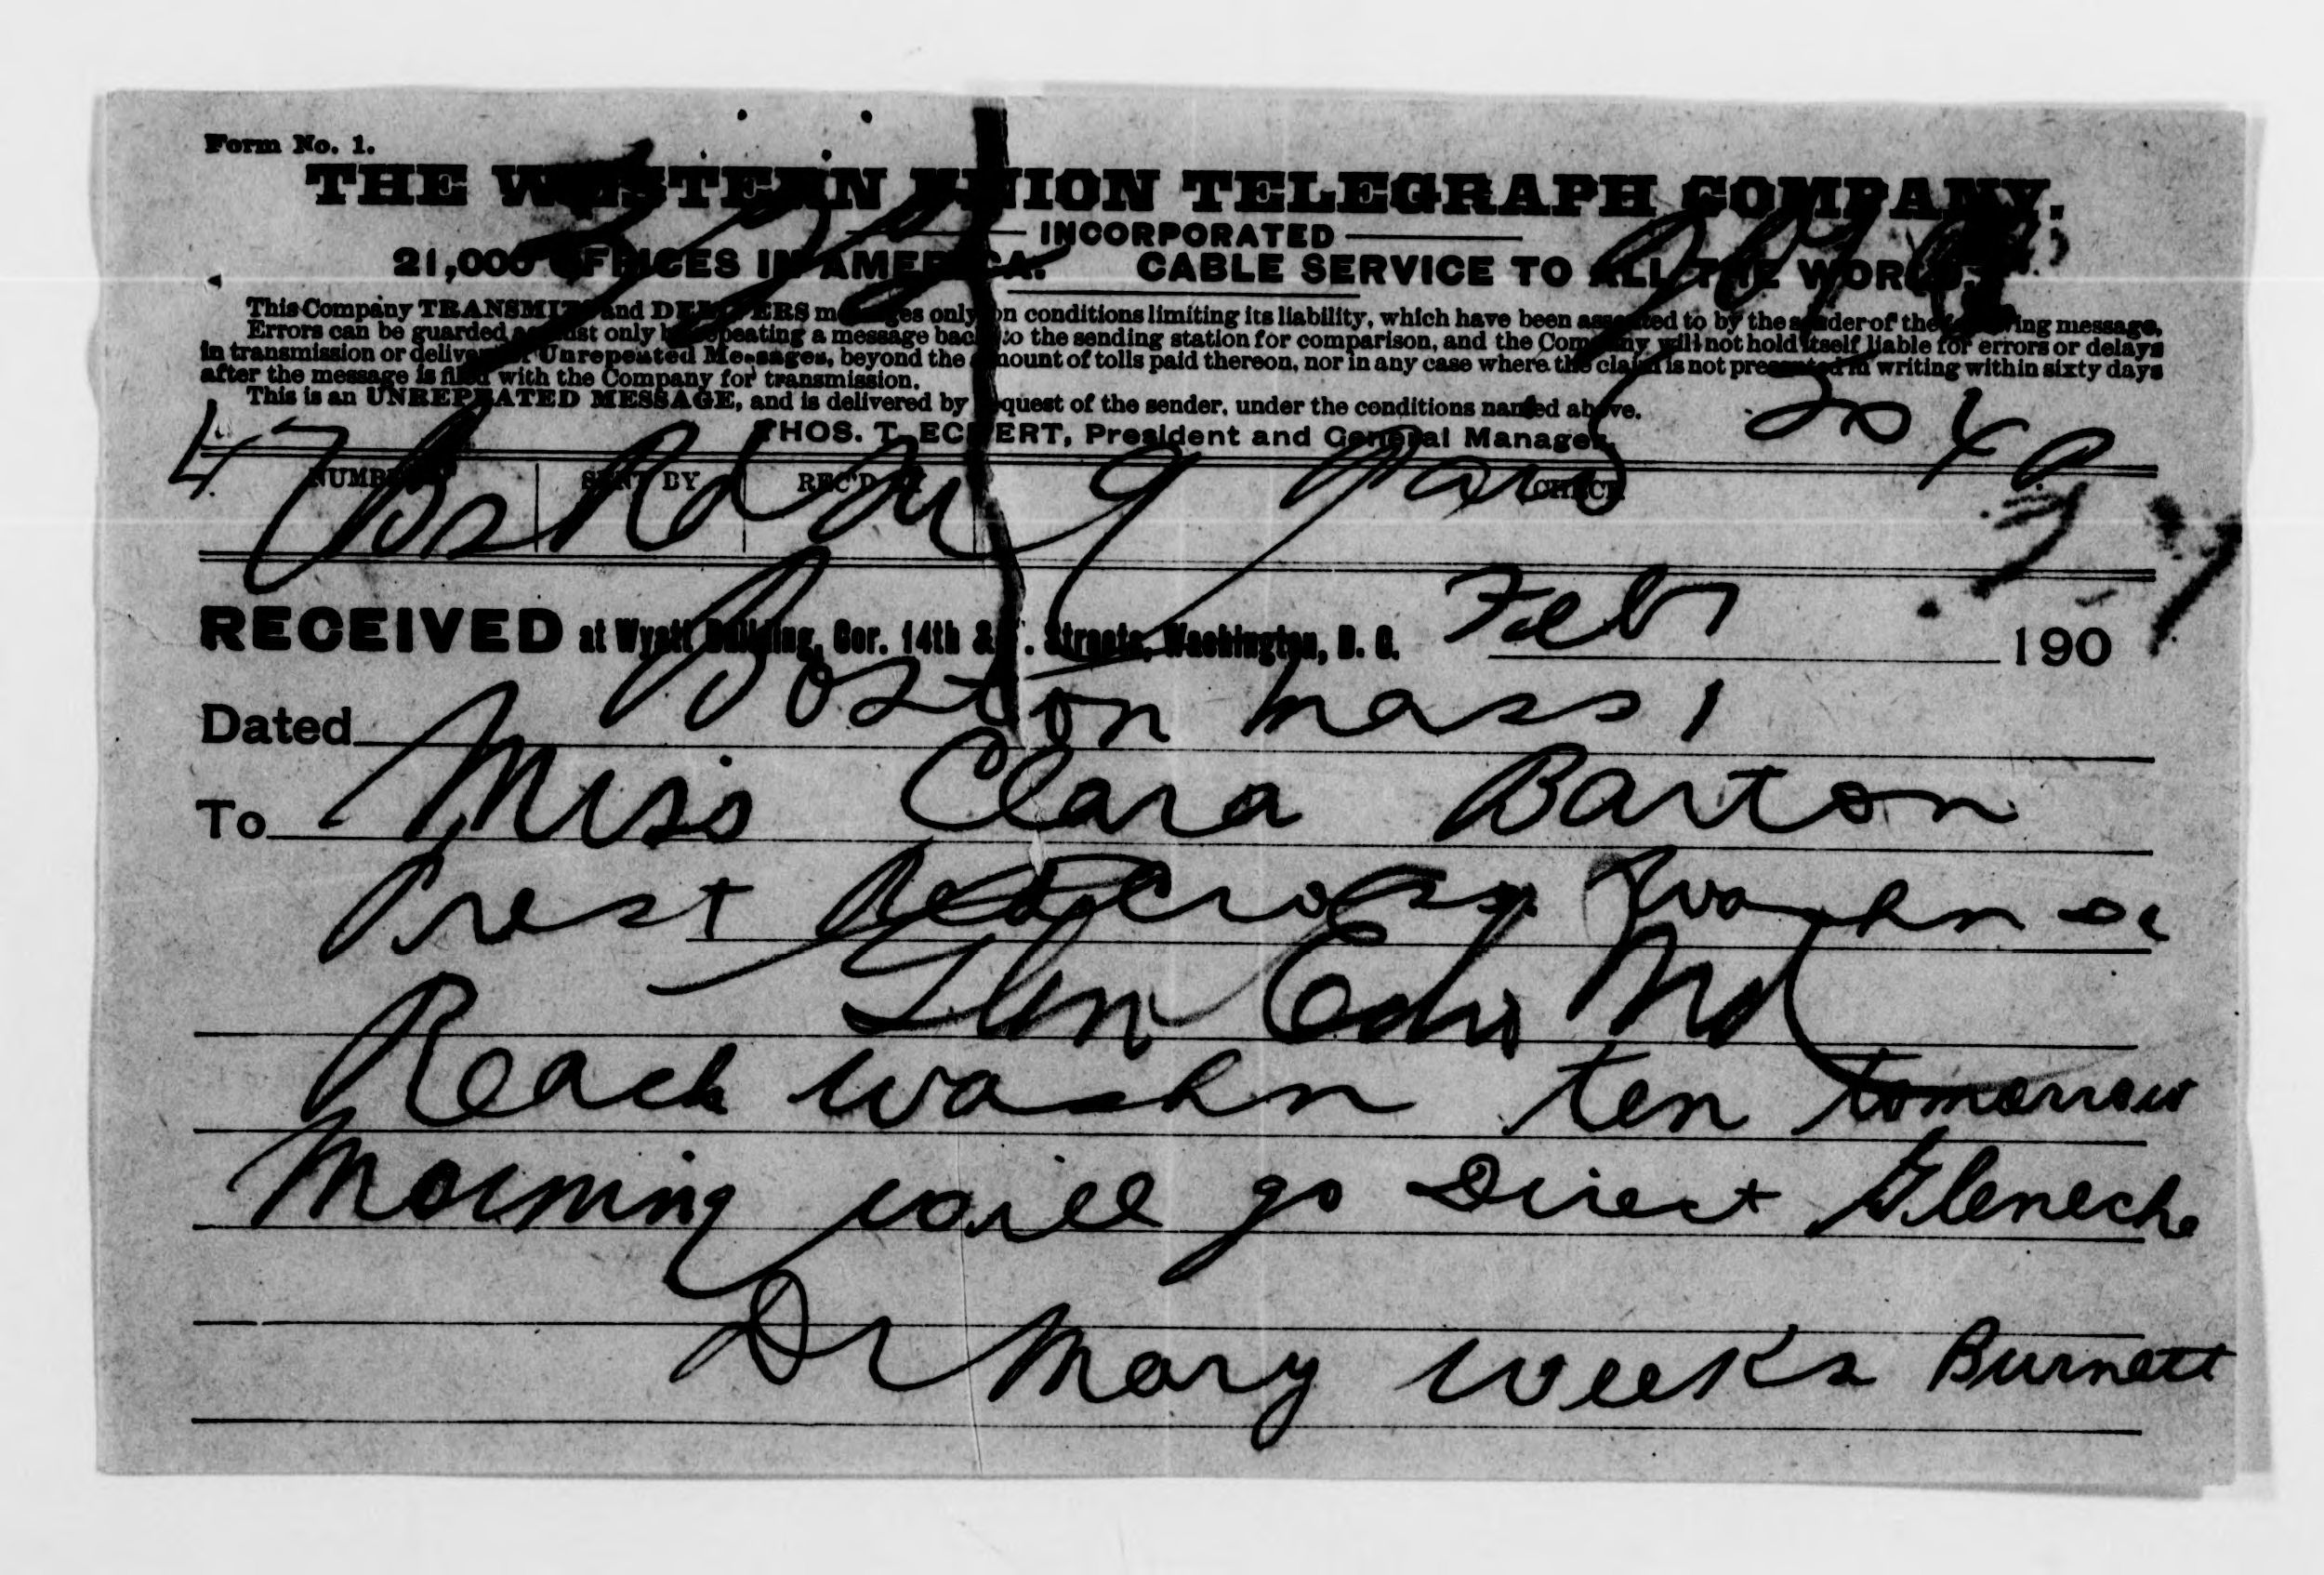 Form No. 1.
THE WESTERN UNION TELEGRAPH COMPANY.
INCORPORATED
21,000 OFFICES IN AMERICA. CABLE SERVICE TO ALL THE WORLD.
This Company TRANSMITS and DELIVERS messages only on conditions limiting its liability, which have been assented to by the sender of the following message.
Errors can be guarded against only by repeating a message back to the sending station for comparison, and the Company will not hold itself liable for errors or delays
in transmission or delivery of Unrepeated Messages, beyond the amount of tolls paid thereon, nor in any case where the claim is not presented in writing within sixty days
after the message is filed with the Company for transmission.
This is an UNREPEATED MESSAGE, and is delivered by request of the sender, under the conditions named above.
THOS. T. ECKERT, President and General Manager.
NUMBER SENT BY REC'D BY CHECK
47 9 Paid
RECEIVED at Wyatt Building, Cor. 14th & F. Streets, Washington, D. C. Feb 7 190
Dated Boston Mass
To Miss Clara Barton
Prest Red Cross Washn DC
Glen Echo Md
Reach Washn ten tomorrow
Morning will go Direct Glenecho
Dr Mary Weeks Burnett